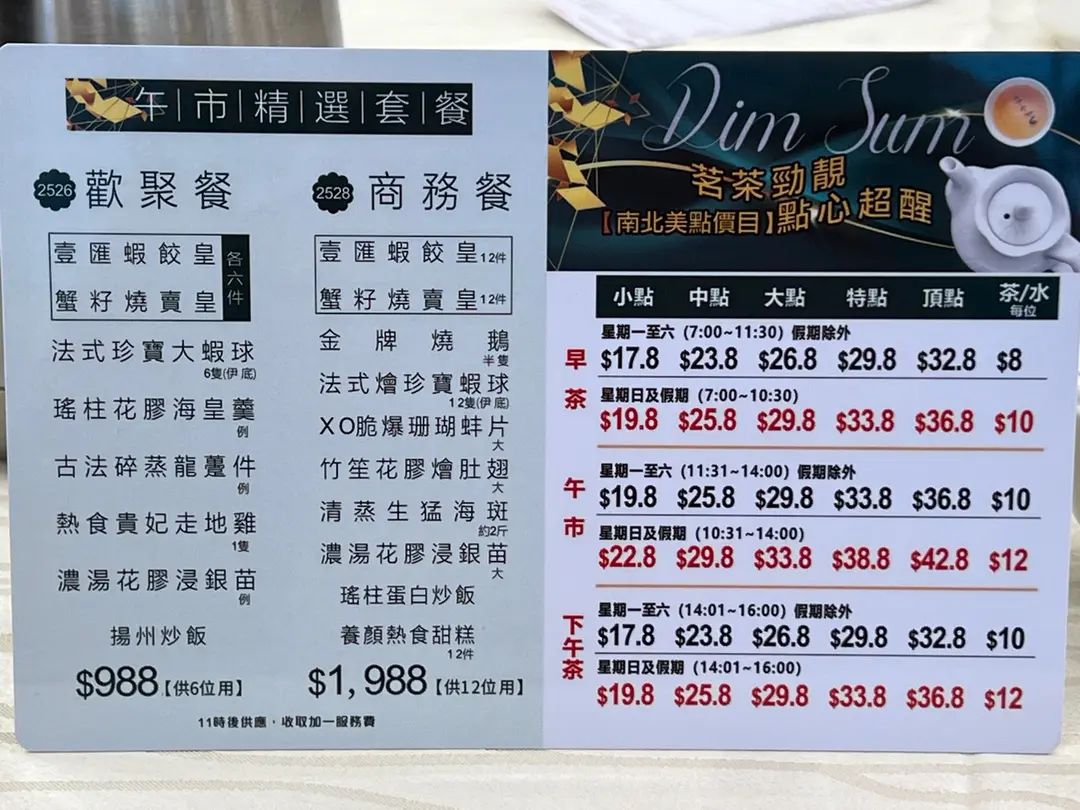 午|市|精|選|套|餐
2526 歡聚餐
壹匯蝦餃皇
蟹籽燒賣皇
各六件
法式珍寶大蝦球
6隻(伊底)
瑤柱花膠海皇羹
例
古法碎蒸龍躉件
例
熱食貴妃走地雞
1隻
濃湯花膠浸銀苗
例
揚州炒飯
$988【供6位用】
2528 商務餐
壹匯蝦餃皇12件
蟹籽燒賣皇12件
金牌燒鵝
半隻
法式燴珍寶蝦球
12隻(伊底)
XO脆爆珊瑚蚌片
大
竹笙花膠燴肚翅
大
清蒸生猛海斑
約2斤
濃湯花膠浸銀苗
大
瑤柱蛋白炒飯
養顏熱食甜糕
12件
$1,988【供12位用】
11時後供應，收取加一服務費
Dim Sum
茗茶勁靚
【南北美點價目】點心超醒
小點 中點 大點 特點 頂點 茶/水
每位
早茶
星期一至六 (7:00~11:30) 假期除外
$17.8 $23.8 $26.8 $29.8 $32.8 $8
星期日及假期 (7:00~10:30)
$19.8 $25.8 $29.8 $33.8 $36.8 $10
午市
星期一至六 (11:31~14:00) 假期除外
$19.8 $25.8 $29.8 $33.8 $36.8 $10
星期日及假期 (10:31~14:00)
$22.8 $29.8 $33.8 $38.8 $42.8 $12
下午茶
星期一至六 (14:01~16:00) 假期除外
$17.8 $23.8 $26.8 $29.8 $32.8 $10
星期日及假期 (14:01~16:00)
$19.8 $25.8 $29.8 $33.8 $36.8 $12